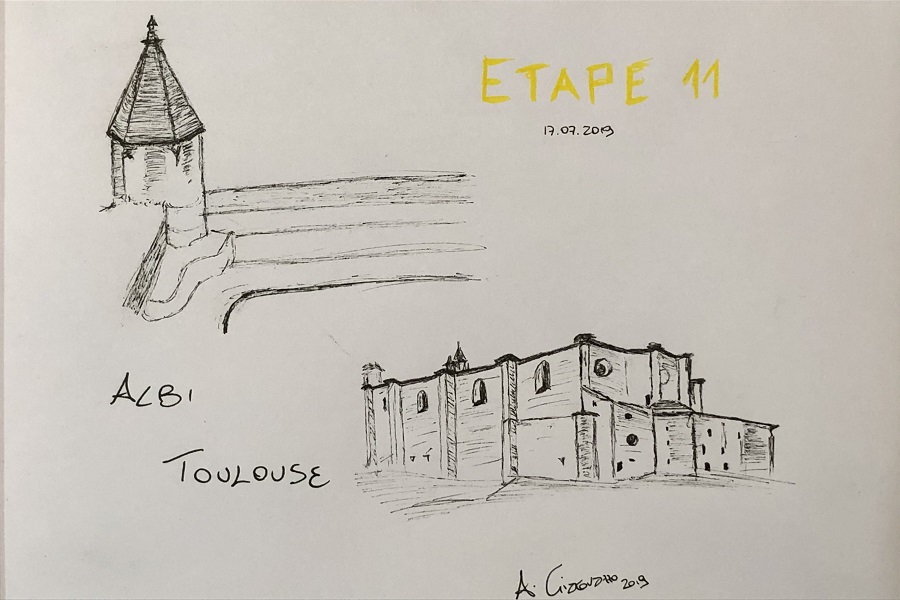 ETAPE 11
17.07.2019
ALBI
TOULOUSE
A. 2019